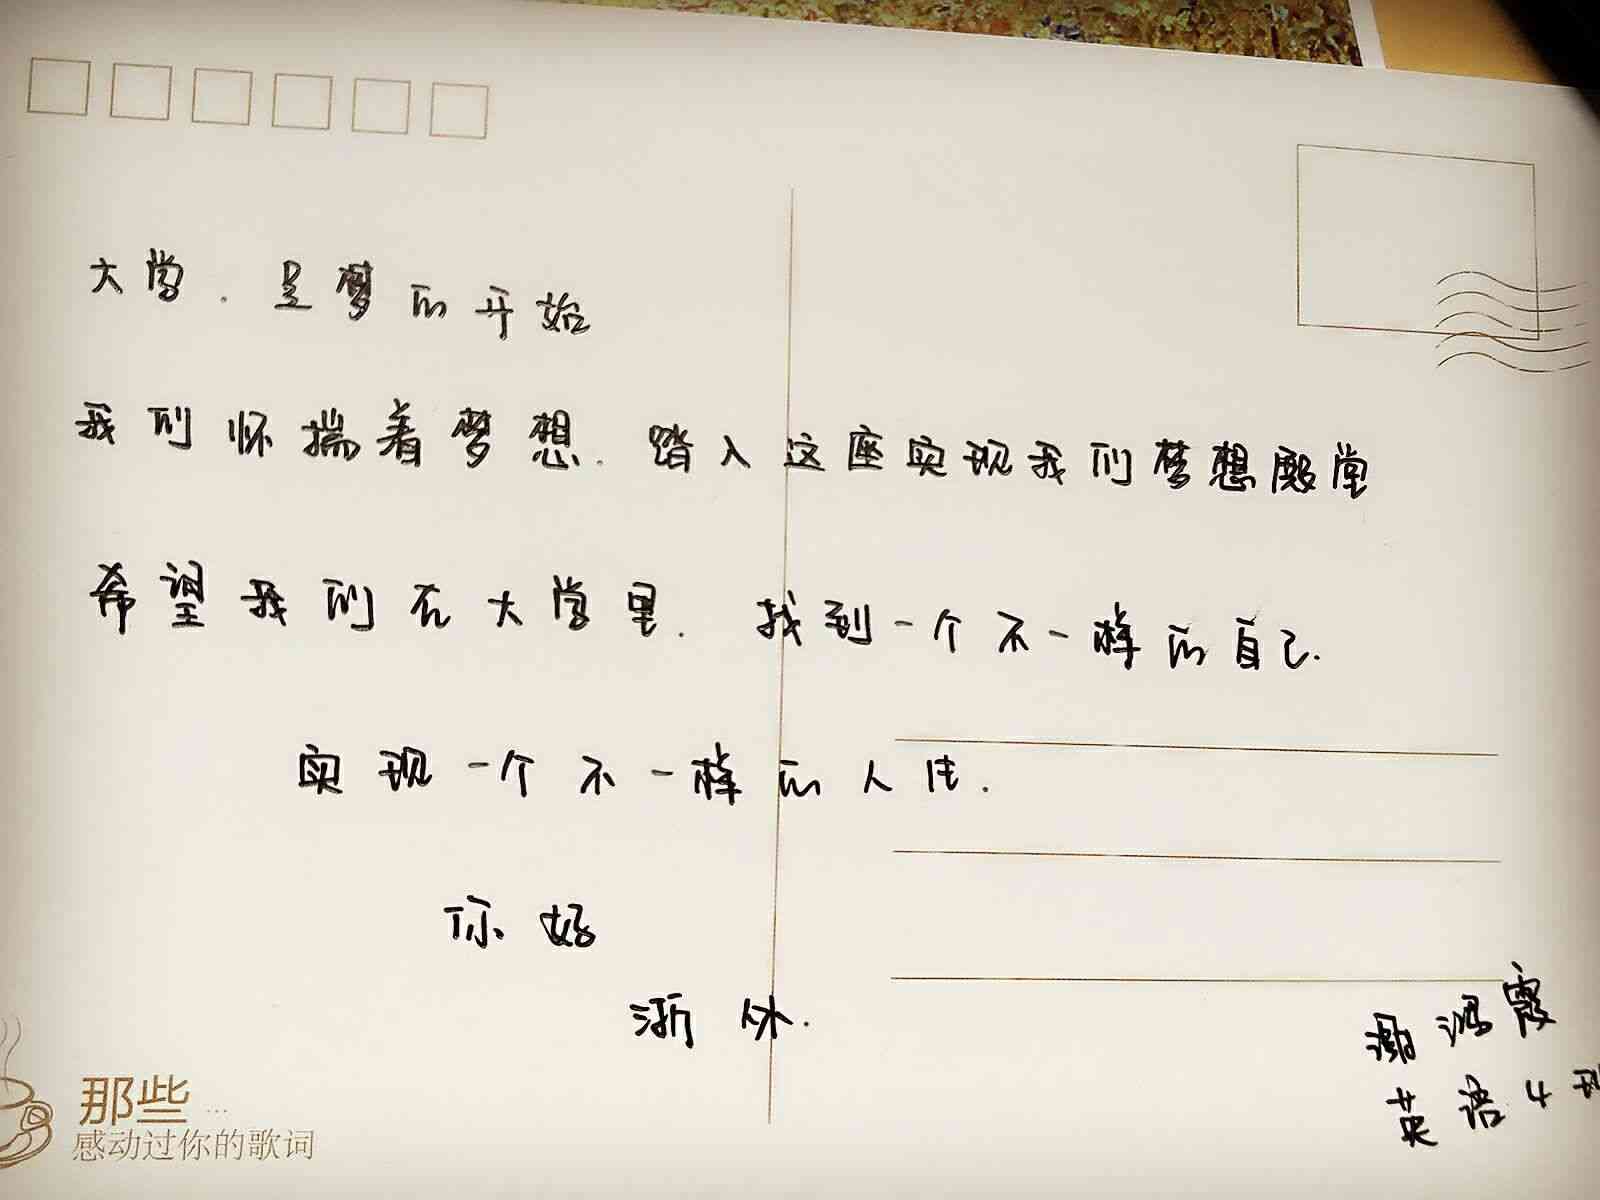 大学.是梦的开始
我们怀揣着梦想.踏入这座实现我们梦想殿堂
希望我们在大学里.找到一个不一样的自己.
实现一个不一样的人生.
你好
浙外.
霞
英语4班
那些...
感动过你的歌词